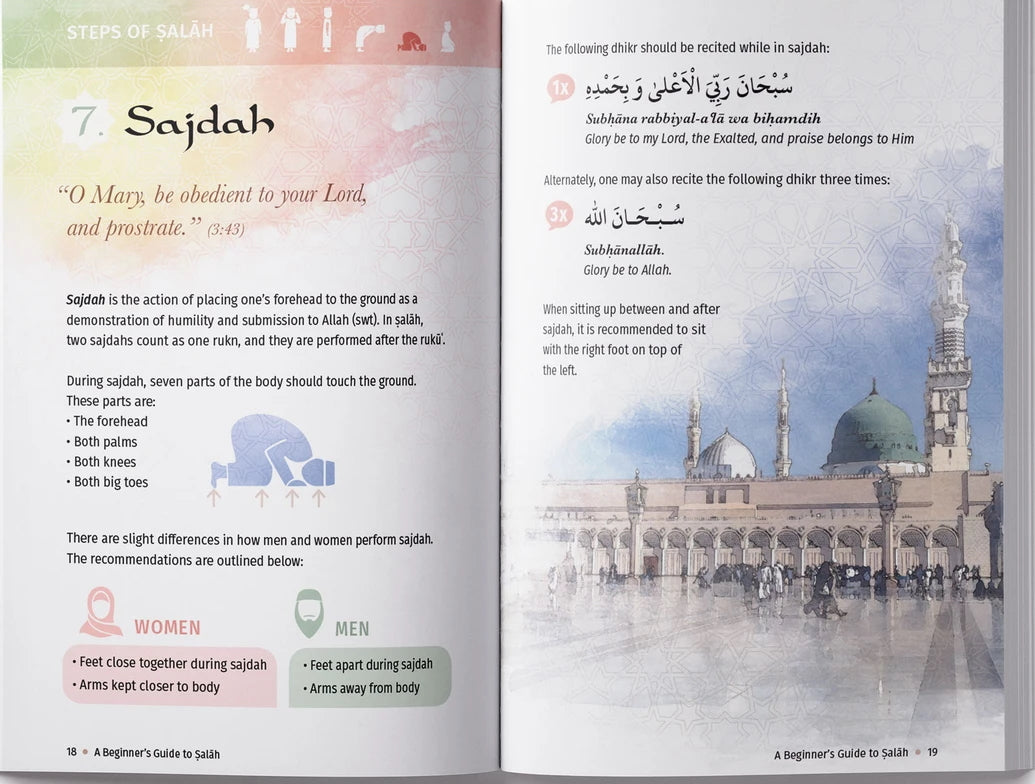 STEPS OF ṢALĀH
7. Sajdah
“O Mary, be obedient to your Lord,
and prostrate.” (3:43)
Sajdah is the action of placing one’s forehead to the ground as a
demonstration of humility and submission to Allah (swt). In ṣalāh,
two sajdahs count as one rukn, and they are performed after the rukūʿ.
During sajdah, seven parts of the body should touch the ground.
These parts are:
• The forehead
• Both palms
• Both knees
• Both big toes
There are slight differences in how men and women perform sajdah.
The recommendations are outlined below:
WOMEN
• Feet close together during sajdah
• Arms kept closer to body
MEN
• Feet apart during sajdah
• Arms away from body
18 • A Beginner’s Guide to Ṣalāh
The following dhikr should be recited while in sajdah:
1x سُبْحَانَ رَبِّيَ الْأَعْلىٰ وَ بِحَمْدِهِ
Subḥāna rabbiyal-aʿlā wa biḥamdih
Glory be to my Lord, the Exalted, and praise belongs to Him
Alternately, one may also recite the following dhikr three times:
3x سُبْحَانَ الله
Subḥānallāh.
Glory be to Allah.
When sitting up between and after
sajdah, it is recommended to sit
with the right foot on top of
the left.
A Beginner’s Guide to Ṣalāh • 19